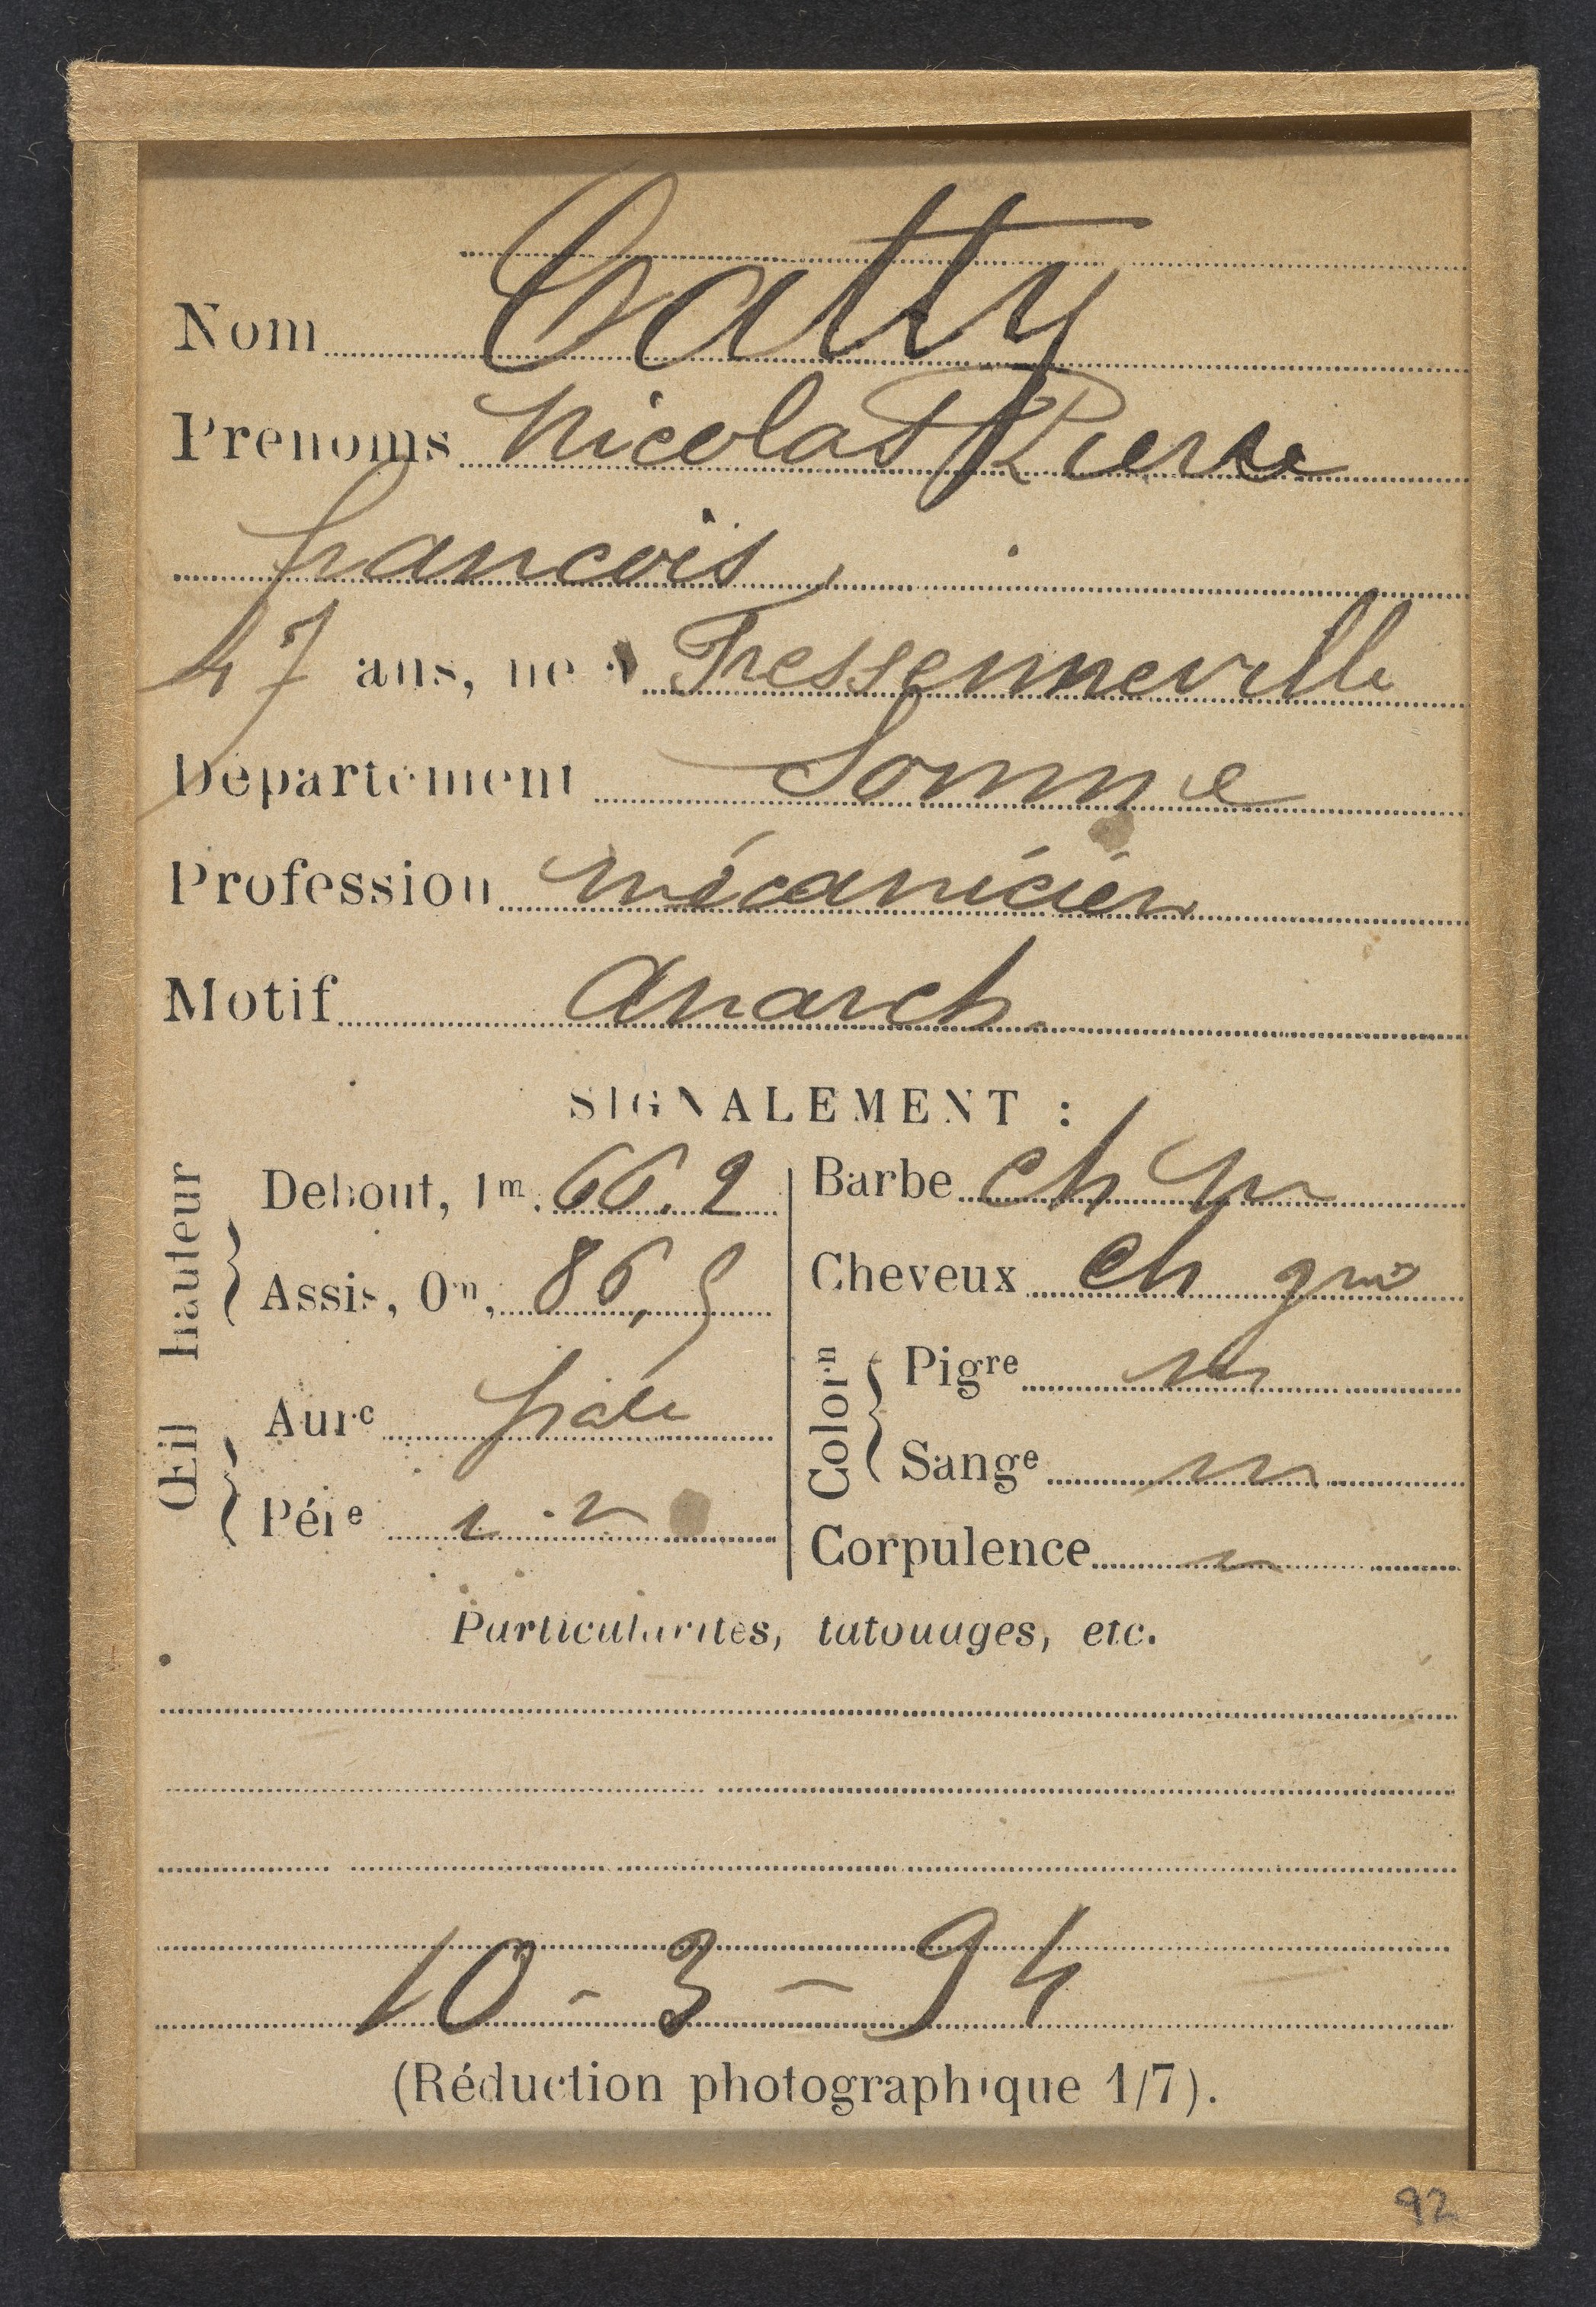 Nom Catty
Prénoms Nicolas Pierre
françois,
47 ans, né à Fressenneville
Département Somme
Profession mécanicien
Motif Anarch.
SIGNALEMENT :
hauteur
Debout, 1m, 66.2
Assis, 0m, 86,5
Œil
Aurc
Pére
Barbe ch
Cheveux ch gris
Colorn
Pigre m
Sange m
Corpulence
Particularités, tatouages, etc.
10 - 3 - 94
(Réduction photographique 1/7).
92